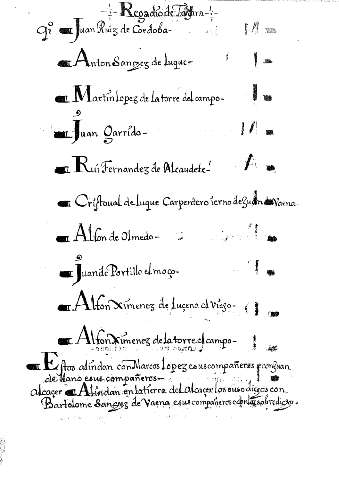 Regadio de
Juan Ruiz de Cordoba
Anton Sanchez de Luque
Martin Lopez de la torre del campo
Juan Garrido
Rui Fernandez de Alcaudete
Cristoual de Luque Carpendero ierno de Juan de Vaena
Alfon de Olmedo
Juan de Portillo el moço
Alfon Ximenez de Luçena el Viejo
Alfon Ximenez de la torre el campo
Estos alindan con Marcos Lopez e sus compañeros
de llano e sus compañeros
Alindan en la tierra del Alcaçer los suso dichos con
Bartolome Sanchez de Vaena e sus compañeros